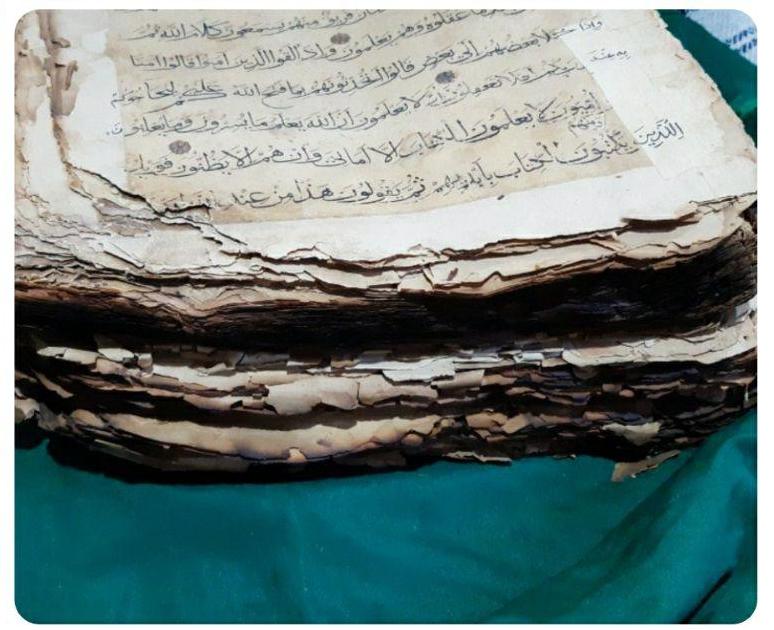 فريق منهم يسمعون كلام الله ثم
ما عقلوه وهم يعلمون واذا لقوا الذين امنوا قالوا امنا
واذا خلا بعضهم الى بعض قالوا اتحدثونهم بما فتح الله عليكم ليحاجوكم
به عند
افلا تعقلون اولا يعلمون ان الله يعلم ما يسرون وما يعلنون
ومنهم
اميون لا يعلمون الكتاب الا اماني وان هم الا يظنون فويل
للذين يكتبون الكتاب بأيديهم ثم يقولون هذا من عند